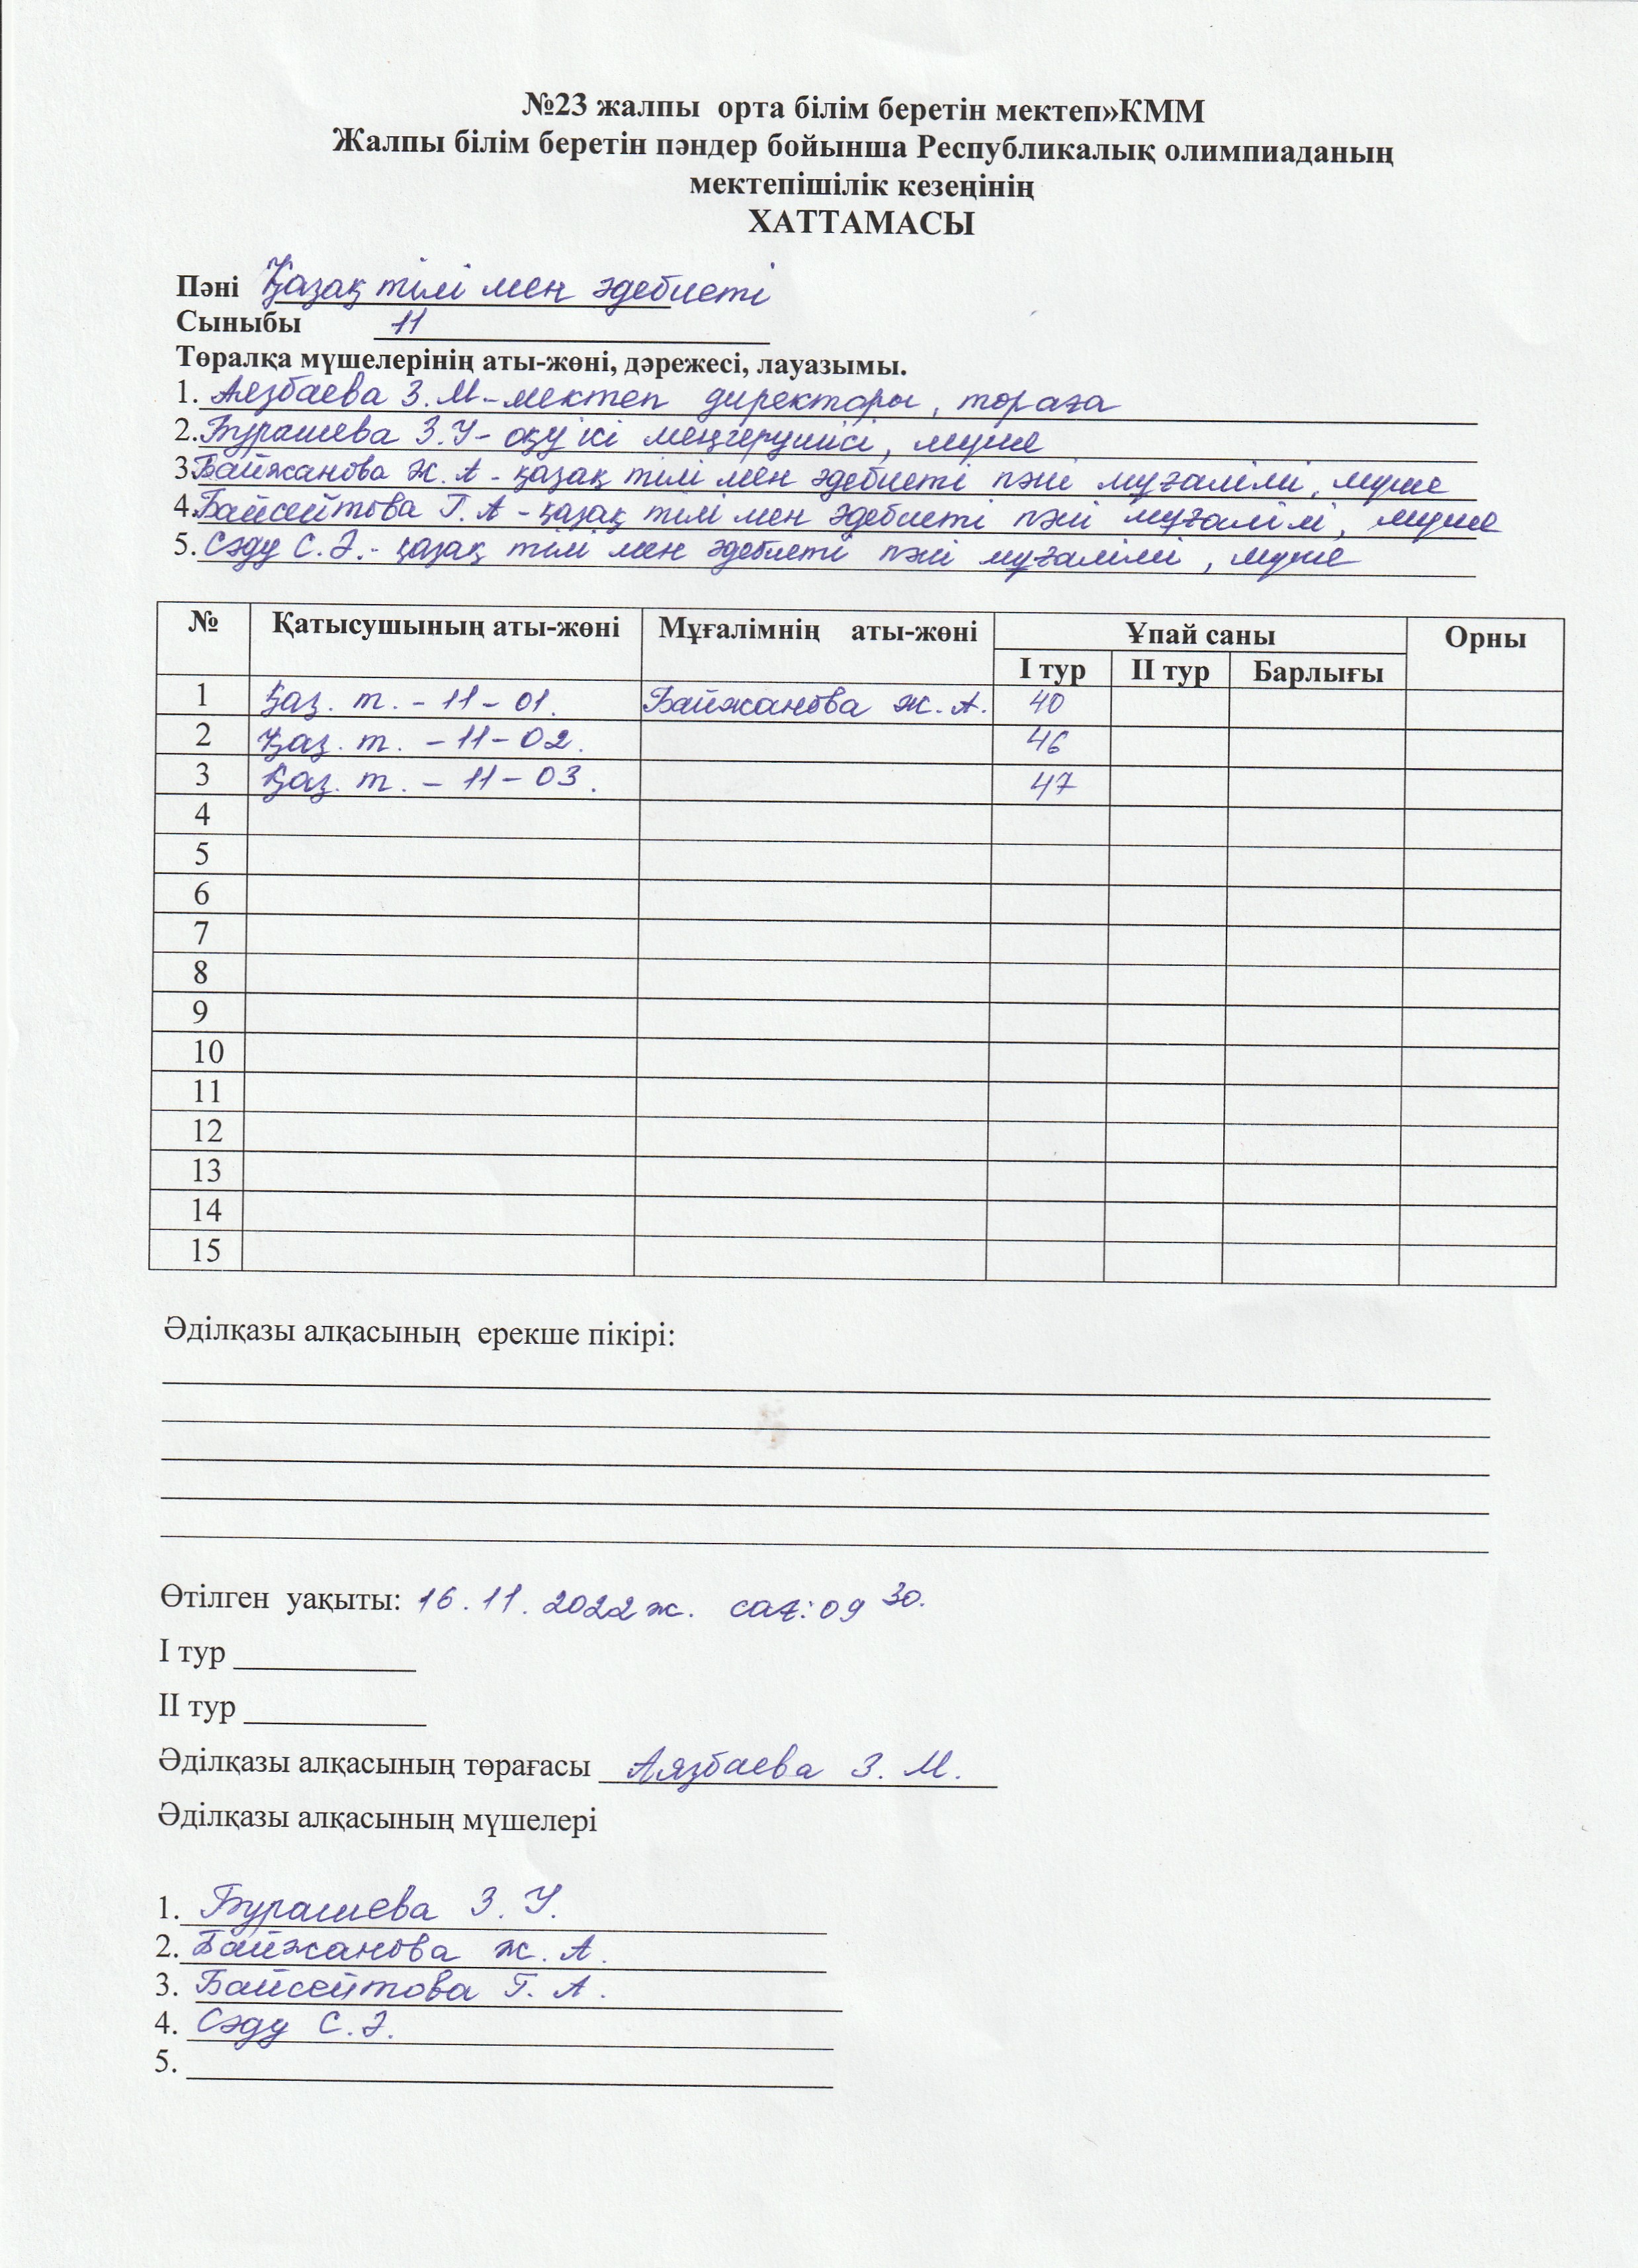 №23 жалпы орта білім беретін мектеп»КММ
Жалпы білім беретін пәндер бойынша Республикалық олимпиаданың
мектепішілік кезеңінің
ХАТТАМАСЫ
Пәні Қазақ тілі мен әдебиеті
Сыныбы 11
Төралқа мүшелерінің аты-жөні, дәрежесі, лауазымы.
1. Аязбаева З.М - мектеп директоры, төраға
2. Бурашева З.У - оқу ісі меңгерушісі, мүше
3 Байжанова Ж.А - қазақ тілі мен әдебиеті пәні мұғалімі, мүше
4. Байсейтова Г.А - қазақ тілі мен әдебиеті пәні мұғалімі, мүше
5. Сәду С.Ә. - қазақ тілі мен әдебиеті пәні мұғалімі, мүше
№ Қатысушының аты-жөні Мұғалімнің аты-жөні Ұпай саны Орны
I тур II тур Барлығы
1 Қаз. т. - 11 - 01. Байжанова Ж.А. 40
2 Қаз. т. - 11 - 02. 46
3 Қаз. т. - 11 - 03. 47
4
5
6
7
8
9
10
11
12
13
14
15
Әділқазы алқасының ерекше пікірі:
Өтілген уақыты: 16.11.2022 ж. сағ: 09 30.
I тур
II тур
Әділқазы алқасының төрағасы Аязбаева З. М.
Әділқазы алқасының мүшелері
1. Бурашева З. У.
2. Байжанова Ж. А.
3. Байсейтова Г. А.
4. Сәду С.Ә.
5.